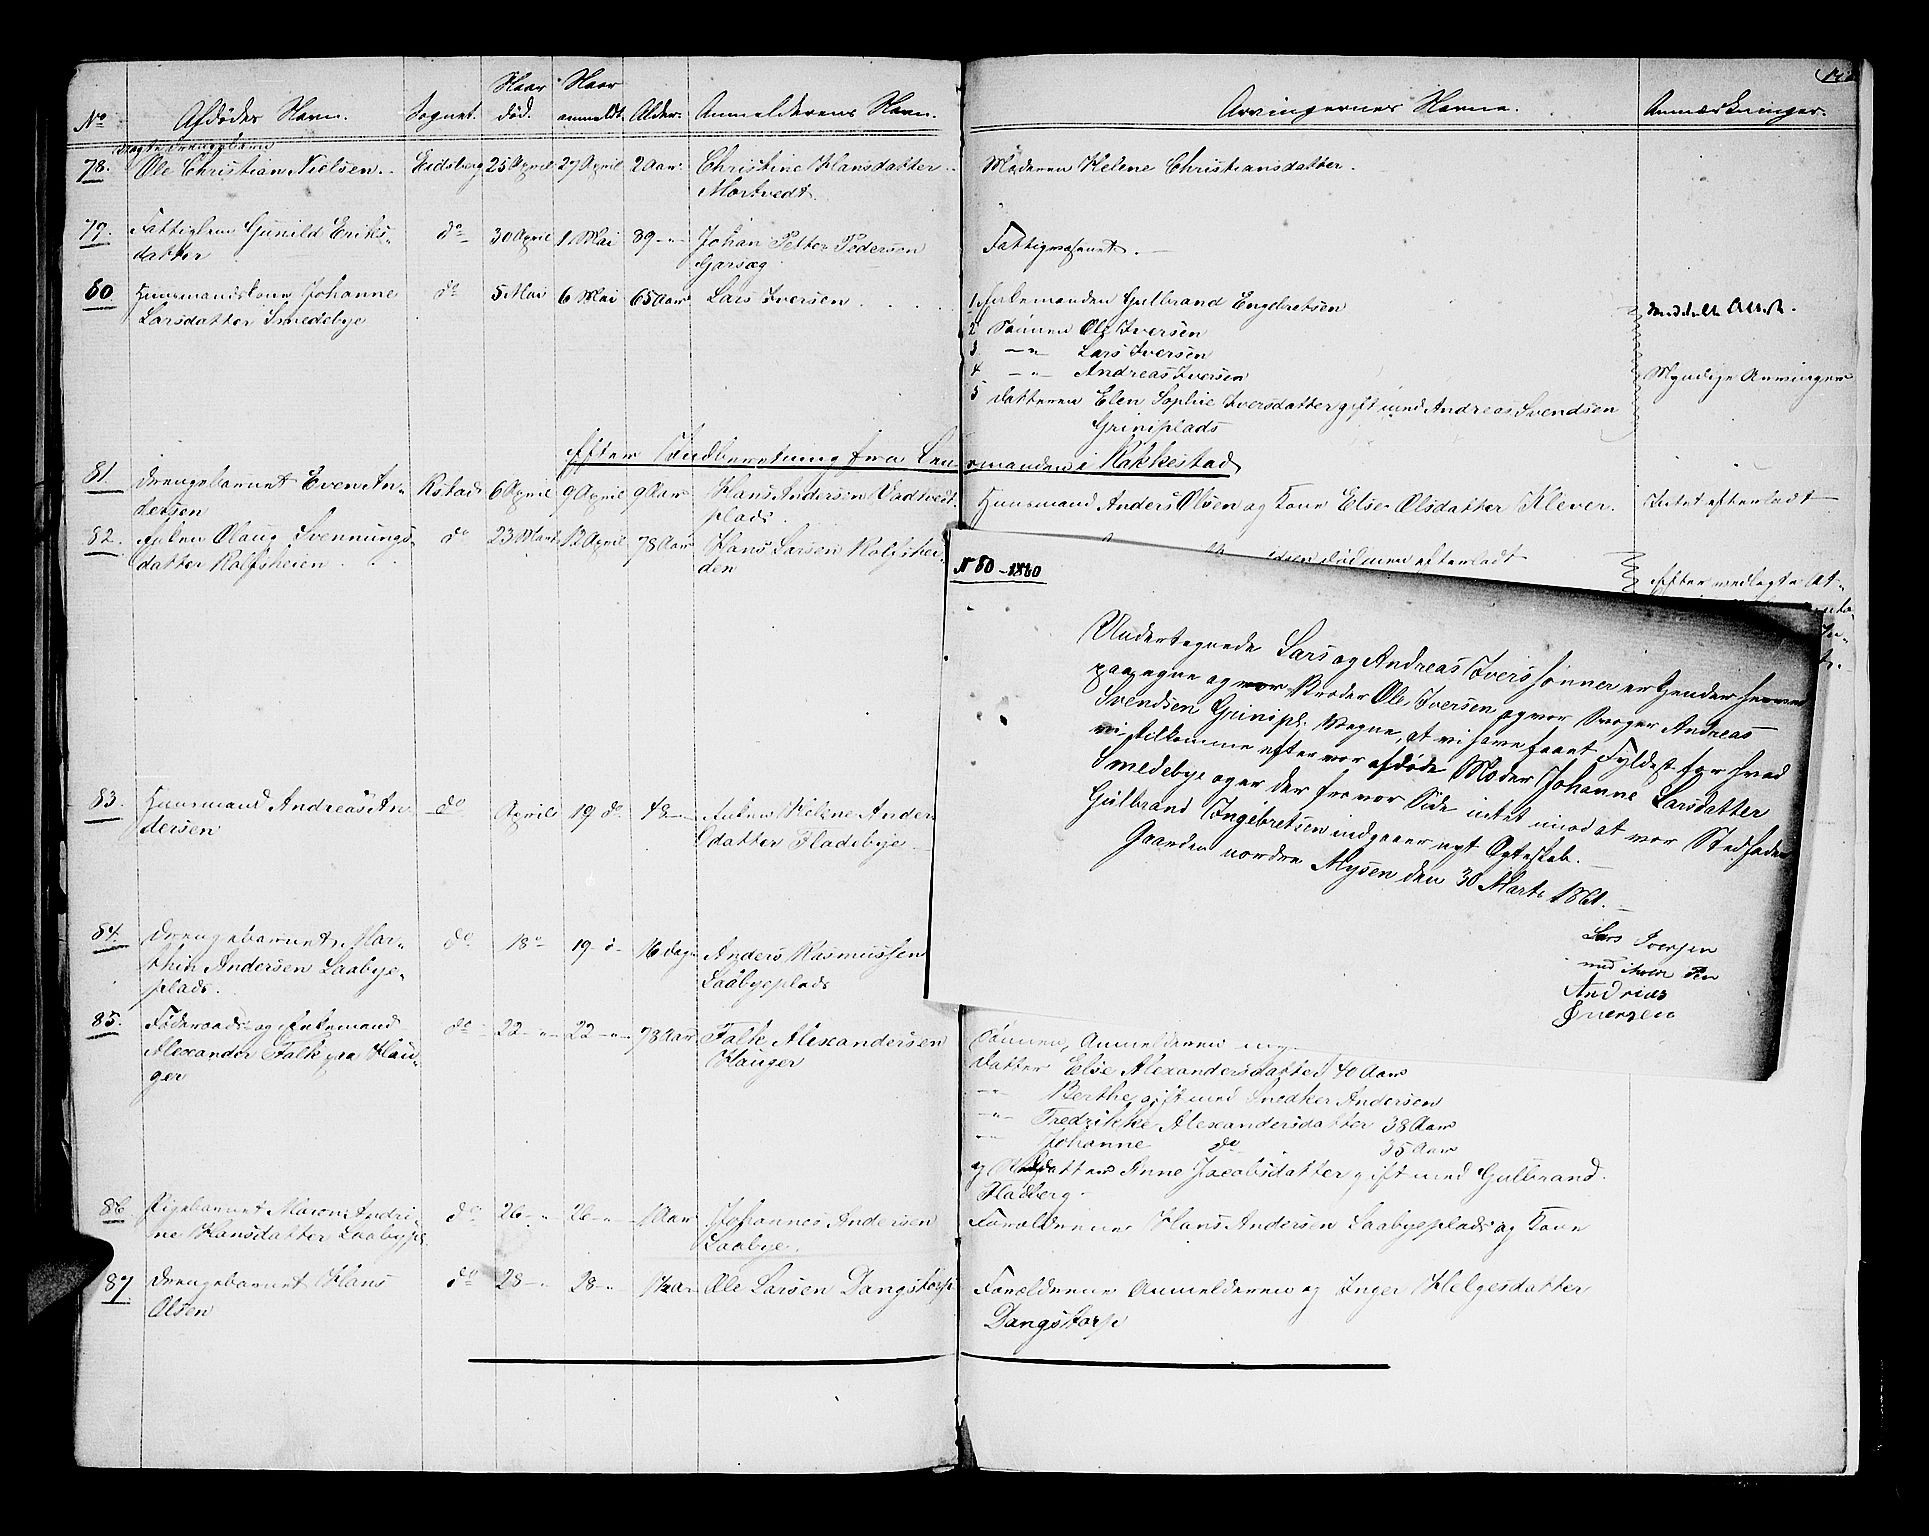 No
Afdødes Navn.
Sognet.
Naar død.
Naar anmeldt.
Alder.
Anmelderens Navn.
Arvingernes Navne.
Anmærkninger.
78. uægte Drengebarn
Ole Christian Nielsen. Eidsberg 25 April 27 April 2 Aar Christine Hansdatter
Mortvedt.
Moderen Helene Christiansdatter.
79. Fattiglem Gunild Eriks-
datter do 30 April 1 Mai 89 -"- Johan Petter Pedersen
Garsæg
Fattigvæsenet.
80 Huusmandskone Johanne
Larsdatter Smedebye do 5 Mai 6 Mai 65 Aar Lars Iversen
1. Enkemanden Gulbrand Engebretsen
2 Sønnen Ole Iversen
3 -"- Lars Iversen
4 -"- Andreas Iversen
5 Datteren Elen Sophie Iversdatter gift med Andreas Svendsen
Griniplads
meddelt Attest.
Myndige Arvinger
Efter Indberetning fra Lensmanden i Rakkestad
81. Drengebarnet Even An-
dersen Rstad 6 April 9 April 9 Aar Hans Andersen Vadtvedt-
plads.
Huusmand Anders Olsen og Kone Else Olsdatter Klever. Intet efterladt
82. Enken Olaug Svennings-
datter Rolfsheien do 23 Marts 12 April 78 Aar Hans Larsen Rolfshei-
den
efterladt
Efter vedlagte At-
83. Huusmand Andreas An-
dersen do April 19 do 48 -"- Enken Helene Anders
datter Fladebye
84. Drengebarnet Mar-
thin Andersen Laabye-
plads. do 18 -"- 19 -"- 16 Dage Anders Rasmussen
Laabyeplads
85. Føderaads- og Enkemand
Alexander Falk paa Hau-
ger do 22 -"- 22 -"- 78 Aar Falk Alexandersen
Hauger
Sønnen, Anmelderen
Datter Else Alexandersdatter 40 Aar
-"- Berthe, gift med Snedker Andersen
-"- Fredrikke Alexandersdatter 38 Aar
-"- Johanne do 35 Aar
og datter Anne Jacobsdatter gift med Gulbrand
Fladberg
86. Pigebarnet Maren Andri-
ne Hansdatter Laabypl. do 26 -"- 26 -"- 1 Aar Johannes Andersen
Laabye.
Forældrene Hans Andersen Laabyeplads og Kone
87. Drengebarnet Hans
Olsen do 28 -"- 28 -"- Ole Larsen Dangstorp
Forældrene Anmelderen og Inger Helgesdatter
Dangstorp
N 80 - 1860
Undertegnede Lars og Andreas Iverssønner erkjender herved
paa egne og vor Broder Ole Iversen og vor Svoger Andreas
Svendsen Grinipl. Vegne, at vi have faaet Fyldest for hvad
vi tilkomme efter vor afdøde Moder Johanne Larsdatter
Smedebye og er der fra vor Side intet imod at vor Stedfader
Gulbrand Ingebretsen indgaaer nyt Ægteskab.
Gaarden nordre Mysen den 30 Marts 1861.
Lars Iversen
med iholdt Pen
Andrias
Iversen